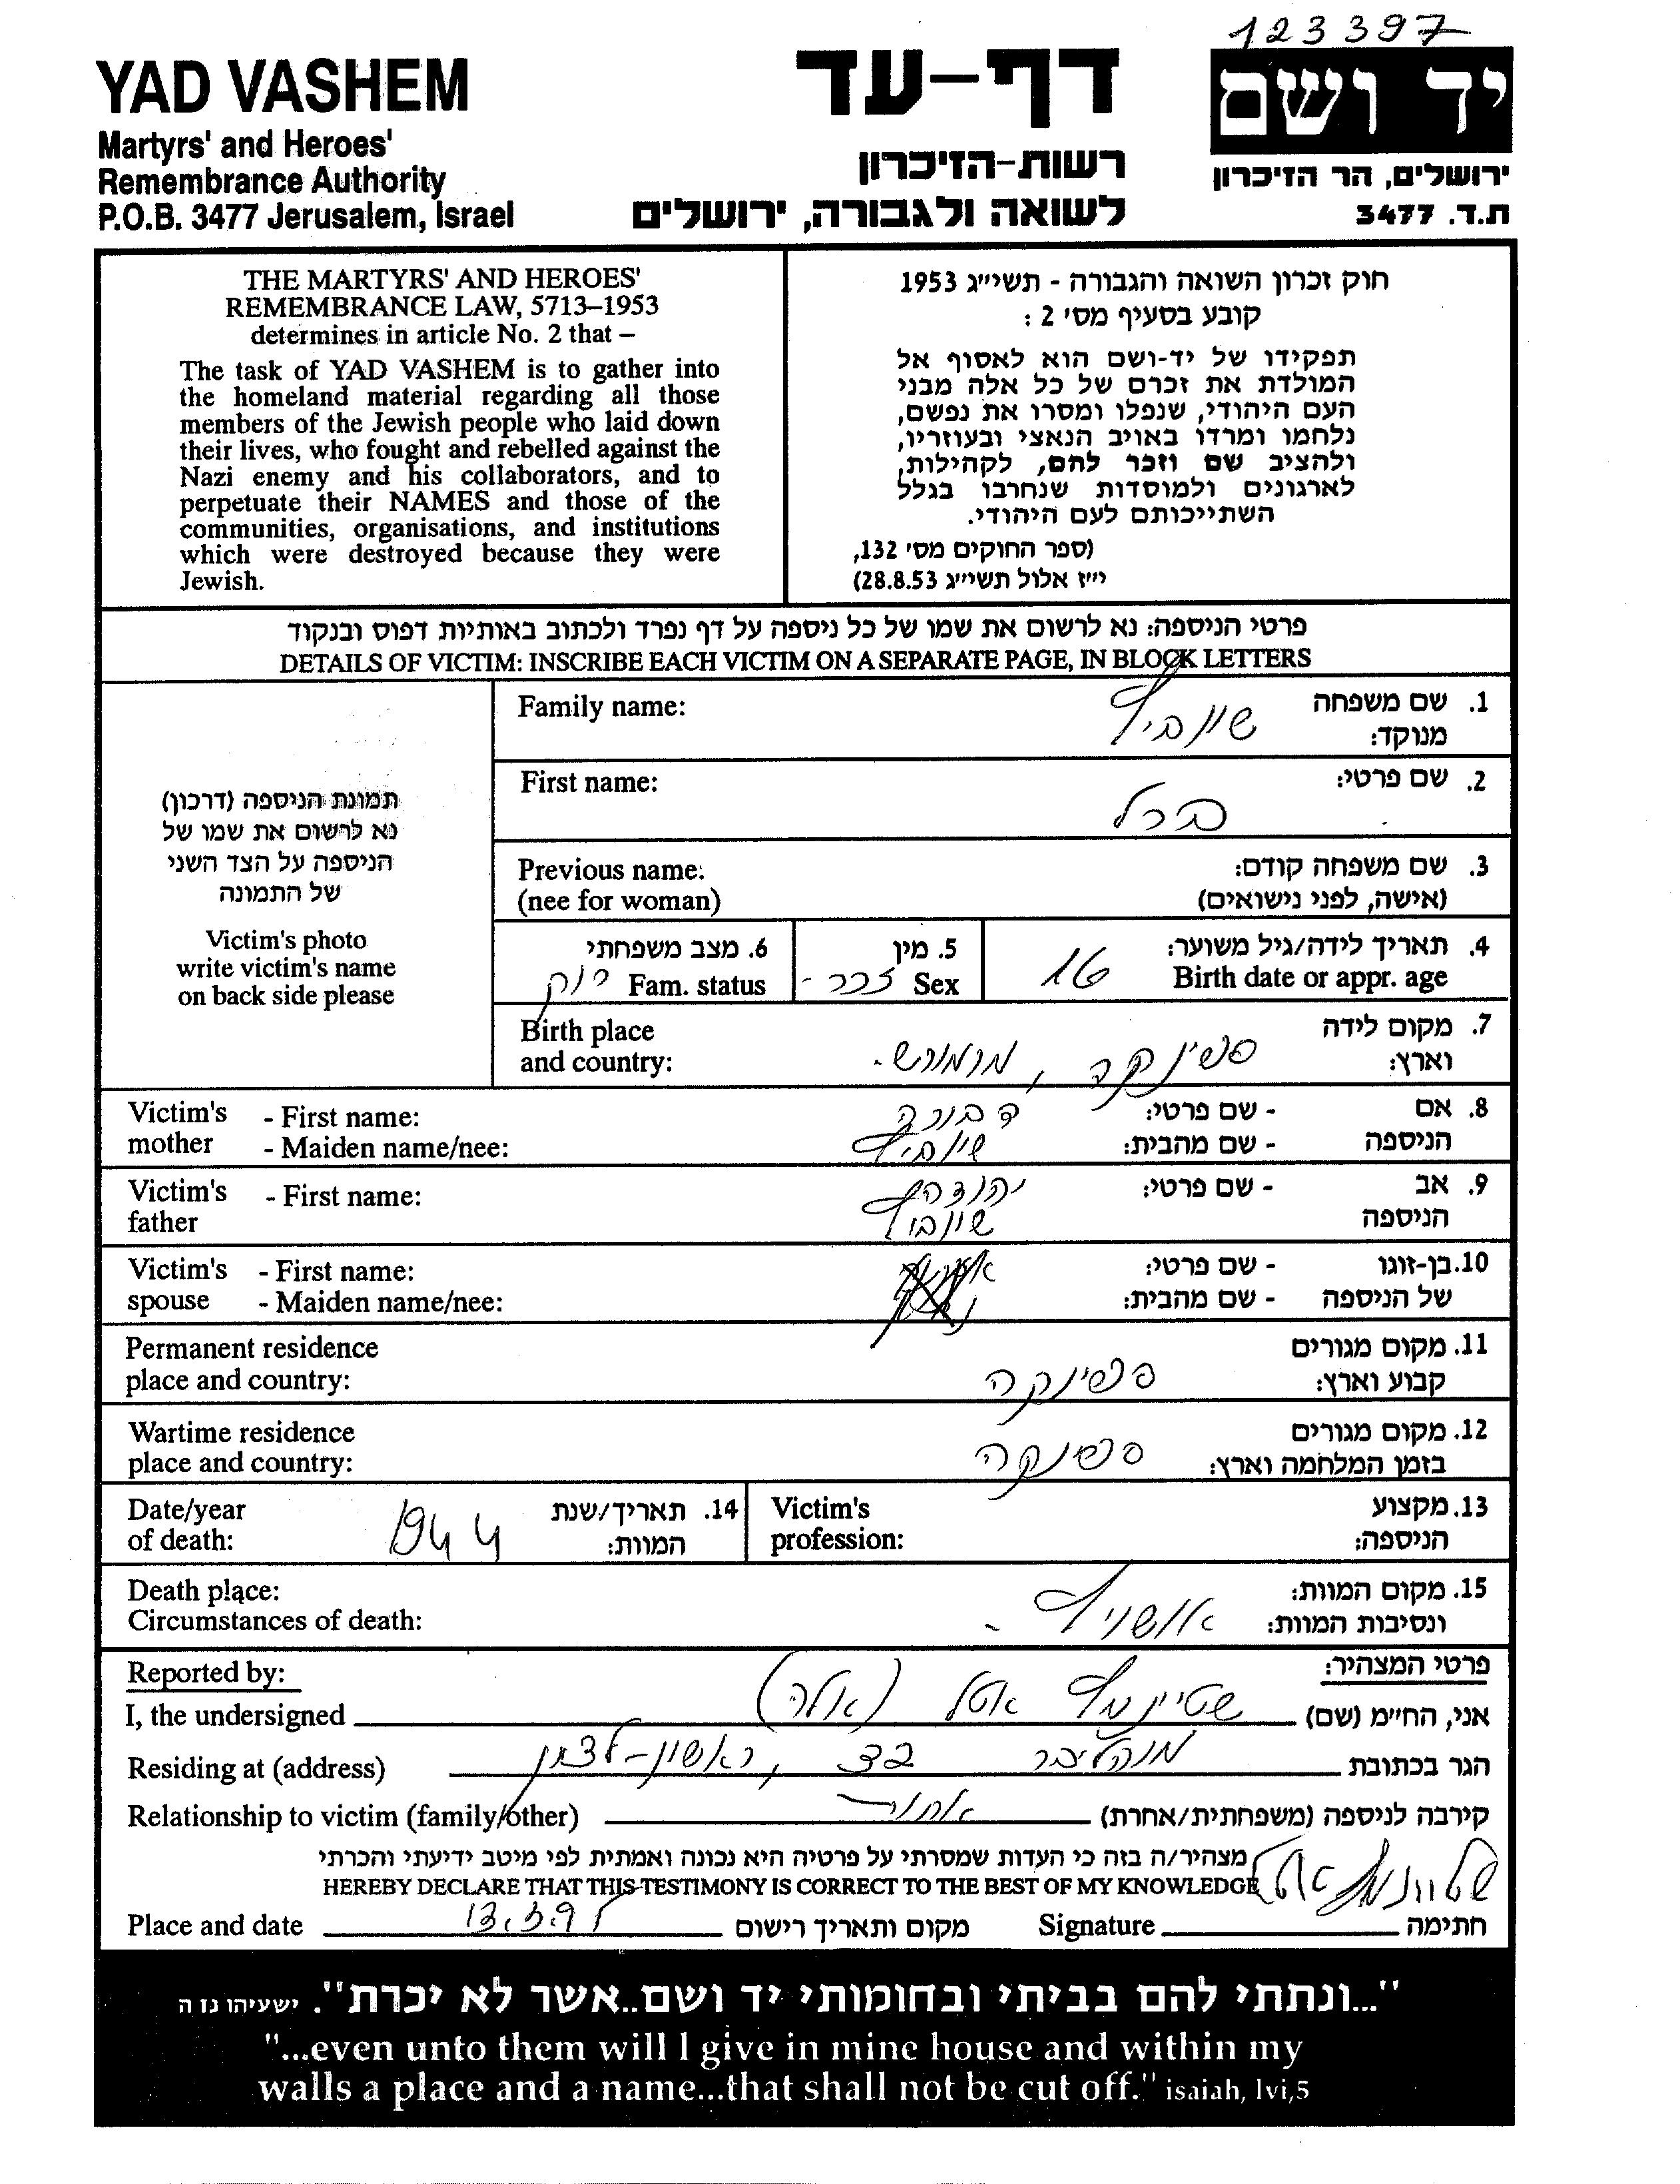 123397
YAD VASHEM
Martyrs' and Heroes'
Remembrance Authority
P.O.B. 3477 Jerusalem, Israel
דף-עד
רשות-הזיכרון
לשואה ולגבורה, ירושלים
יד ושם
ירושלים, הר הזיכרון
ת.ד. 3477
THE MARTYRS' AND HEROES'
REMEMBRANCE LAW, 5713–1953
determines in article No. 2 that –
The task of YAD VASHEM is to gather into
the homeland material regarding all those
members of the Jewish people who laid down
their lives, who fought and rebelled against the
Nazi enemy and his collaborators, and to
perpetuate their NAMES and those of the
communities, organisations, and institutions
which were destroyed because they were
Jewish.
חוק זכרון השואה והגבורה - תשי״ג 1953
קובע בסעיף מס׳ 2 :
תפקידו של יד-ושם הוא לאסוף אל
המולדת את זכרם של כל אלה מבני
העם היהודי, שנפלו ומסרו את נפשם,
נלחמו ומרדו באויב הנאצי ובעוזריו,
ולהציב שם וזכר להם, לקהילות,
לארגונים ולמוסדות שנחרבו בגלל
השתייכותם לעם היהודי.
(ספר החוקים מס׳ 132,
י״ז אלול תשי״ג 28.8.53)
פרטי הניספה: נא לרשום את שמו של כל ניספה על דף נפרד ולכתוב באותיות דפוס ובנקוד
DETAILS OF VICTIM: INSCRIBE EACH VICTIM ON A SEPARATE PAGE, IN BLOCK LETTERS
תמונת הניספה (דרכון)
נא לרשום את שמו של
הניספה על הצד השני
של התמונה
Victim's photo
write victim's name
on back side please
1. שם משפחה
מנוקד: Family name:
2. שם פרטי: ברל First name:
3. שם משפחה קודם: Previous name:
(אישה, לפני נישואים) (nee for woman)
4. תאריך לידה/גיל משוער: 16
Birth date or appr. age
5. מין
Sex זכר -
6. מצב משפחתי
Fam. status רווק
7. מקום לידה Birth place
וארץ: ספינקה, מרמורש. and country:
8. אם - שם פרטי: דבורה Victim's - First name:
הניספה - שם מהבית: mother - Maiden name/nee:
9. אב - שם פרטי: יהודה Victim's - First name:
הניספה father
10. בן-זוגו - שם פרטי: Victim's - First name:
של הניספה - שם מהבית: spouse - Maiden name/nee:
11. מקום מגורים Permanent residence
קבוע וארץ: ספינקה place and country:
12. מקום מגורים Wartime residence
בזמן המלחמה וארץ: ספינקה place and country:
13. מקצוע Victim's
הניספה: profession:
14. תאריך/שנת Date/year
המוות: 1944 of death:
15. מקום המוות: Death place:
ונסיבות המוות: אושויץ - Circumstances of death:
פרטי המצהיר: Reported by:
אני, החי״מ (שם) אטל (אלה) I, the undersigned
הגר בכתובת 32, ראשון-לציון Residing at (address)
קירבה לניספה (משפחתית/אחרת) אחות Relationship to victim (family/other)
מצהיר/ה בזה כי העדות שמסרתי על פרטיה היא נכונה ואמתית לפי מיטב ידיעתי והכרתי
HEREBY DECLARE THAT THIS TESTIMONY IS CORRECT TO THE BEST OF MY KNOWLEDGE
Place and date מקום ותאריך רישום Signature חתימה
"...ונתתי להם בביתי ובחומותי יד ושם..אשר לא יכרת". ישעיהו נו ה
"...even unto them will I give in mine house and within my
walls a place and a name...that shall not be cut off." isaiah, lvi,5